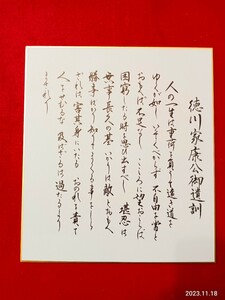 徳川家康公御遺訓
人の一生は重荷を負うて遠き道を
ゆくが如し いそぐべからず 不自由を常と
おもへば不足なし こころに望おこらば
困窮したる時を思ひ出すべし 堪忍は
無事長久の基 いかりは敵とおもへ
勝事ばかり知りてまくる事をしら
ざれば害其身にいたる おのれを責て
人をせむるな 及ばざるは過たるより
まされり
2023.11.18